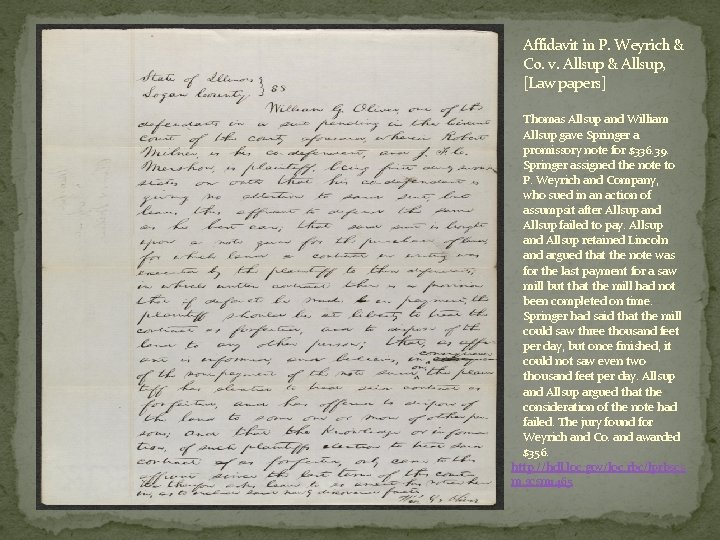 State of Illinois }
Logan County. } SS
William G. Oliver, one of the
defendants in a suit pending in the Circuit
Court of the county aforesaid, wherein Robert
Milner is his co-defendant, and J. H. C.
Mershon, is plaintiff, being first duly sworn
states on oath that his co-defendant is
giving no attention to said suit, but
leaves this affiant to defend the same
as he best can; that said suit is brought
upon a note given for the purchase of land
for which land a contract in writing was
executed by the plaintiff to the defendants,
in which written contract there is a provision
that if default be made in payment, the
plaintiff should be at liberty to treat the
contract as forfeited, and to dispose of the
land to any other person; that, as affi-
ant is informed and believes, in consequence
of the nonpayment of the note sued on, the plain
tiff has elected to treat said contract as
forfeited, and has offered to dispose of
the land to some one or more of other per
sons; and that the knowledge or informa
tion, of such plaintiff's election to treat said
contract as forfeited, only came to this
affiant since the last term of this court
He therefore asks leave to
as to
Wm. G. Oliver
Affidavit in P. Weyrich &
Co. v. Allsup & Allsup,
[Law papers]
Thomas Allsup and William
Allsup gave Springer a
promissory note for $336.39.
Springer assigned the note to
P. Weyrich and Company,
who sued in an action of
assumpsit after Allsup and
Allsup failed to pay. Allsup
and Allsup retained Lincoln
and argued that the note was
for the last payment for a saw
mill but that the mill had not
been completed on time.
Springer had said that the mill
could saw three thousand feet
per day, but once finished, it
could not saw even two
thousand feet per day. Allsup
and Allsup argued that the
consideration of the note had
failed. The jury found for
Weyrich and Co. and awarded
$356.
http://hdl.loc.gov/loc.rbc/lprbscs
m.scsm1463